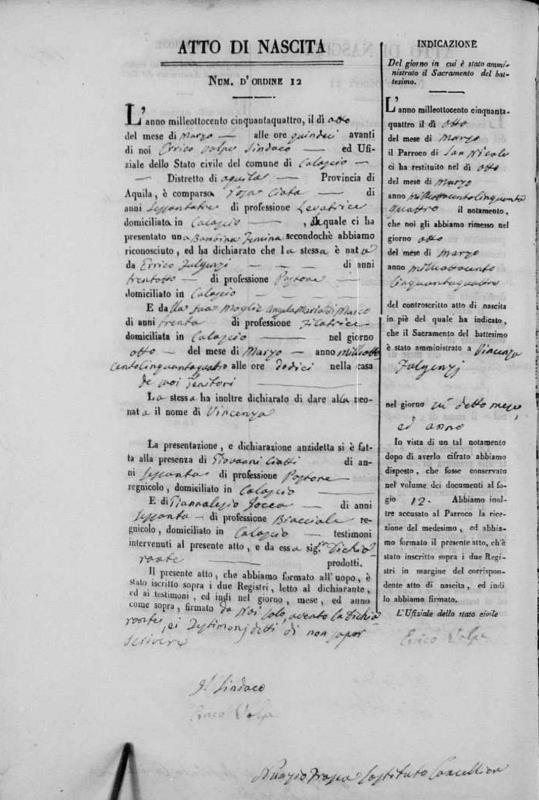 ATTO DI NASCITA
NUM. D' ORDINE 12
L'anno milleottocento cinquantaquattro, il dì otto
del mese di marzo — alle ore quindici avanti
di noi Errico Volpe Sindaco — ed Ufi-
ziale dello Stato civile del comune di Calascio —
— Distretto di Aquila — Provincia di
Aquila, è comparsa Rosa Ciata — di
anni Sessantatre di professione Levatrice
domiciliata in Calascio — , la quale ci ha
presentato una Bambina Femina secondochè abbiamo
riconosciuto, ed ha dichiarato che la stessa è nata
da Errico Fulgenzj — — — di anni
trentotto — di professione Pastore —
domiciliato in Calascio —
E dalla sua Moglie Angela Maria Di Marco
di anni trenta di professione Filatrice
domiciliata in Calascio — nel giorno
otto — del mese di Marzo — anno milleotto
centocinquantaquattro alle ore dodici nella casa
de' suoi genitori —
La stessa ha inoltre dichiarato di dare alla neo-
nata il nome di Vincenza
La presentazione, e dichiarazione anzidetta si è fat-
ta alla presenza di Giovanni Ciatti — di an-
ni Sessanta di professione Pastore
regnicolo, domiciliato in Calascio —
E di Giannalesio — di anni
sessanta — di professione Bracciale re-
gnicolo, domiciliato in Calascio — testimoni
intervenuti al presente atto, e da essa sig.ra Dichia
rante — prodotti.
Il presente atto, che abbiamo formato all'uopo, è
stato inscritto sopra i due Registri, letto al dichiarante,
ed ai testimoni, ed indi nel giorno, mese, ed anno
come sopra, firmato da Noi solo, avendo la Dichia
rante, ei Testimonj detti di non saper
scrivere
Il Sindaco
Errico Volpe
Sostituto Cancelliere
INDICAZIONE
Del giorno in cui è stato ammi-
nistrato il Sacramento del bat-
tesimo.
L'anno milleottocento cinquanta-
quattro il dì otto
del mese di Marzo
il Parroco di San Nicola
ci ha restituito nel dì otto
del mese di Marzo
anno milleottocentocinquanta
quattro il notamento,
che noi gli abbiamo rimesso nel
giorno otto
del mese di Marzo
anno milleottocento
cinquantaquattro
del controscritto atto di nascita
in piè del quale ha indicato,
che il Sacramento del battesimo
è stato amministrato a Vincenza
Fulgenzj
nel giorno detto mese,
ed anno
In vista di un tal notamento
dopo di averlo cifrato abbiamo
disposto, che fosse conservato
nel volume dei documenti al fo-
gio 12. Abbiamo inol-
tre accusato al Parroco la rice-
zione del medesimo, ed abbis-
mo formato il presente atto, ch'è
stato inscritto sopra i due Regi-
stri in margine del corrispon-
dente atto di nascita, ed indi
lo abbiamo firmato.
L'Ufiziale dello stato civile
Errico Volpe